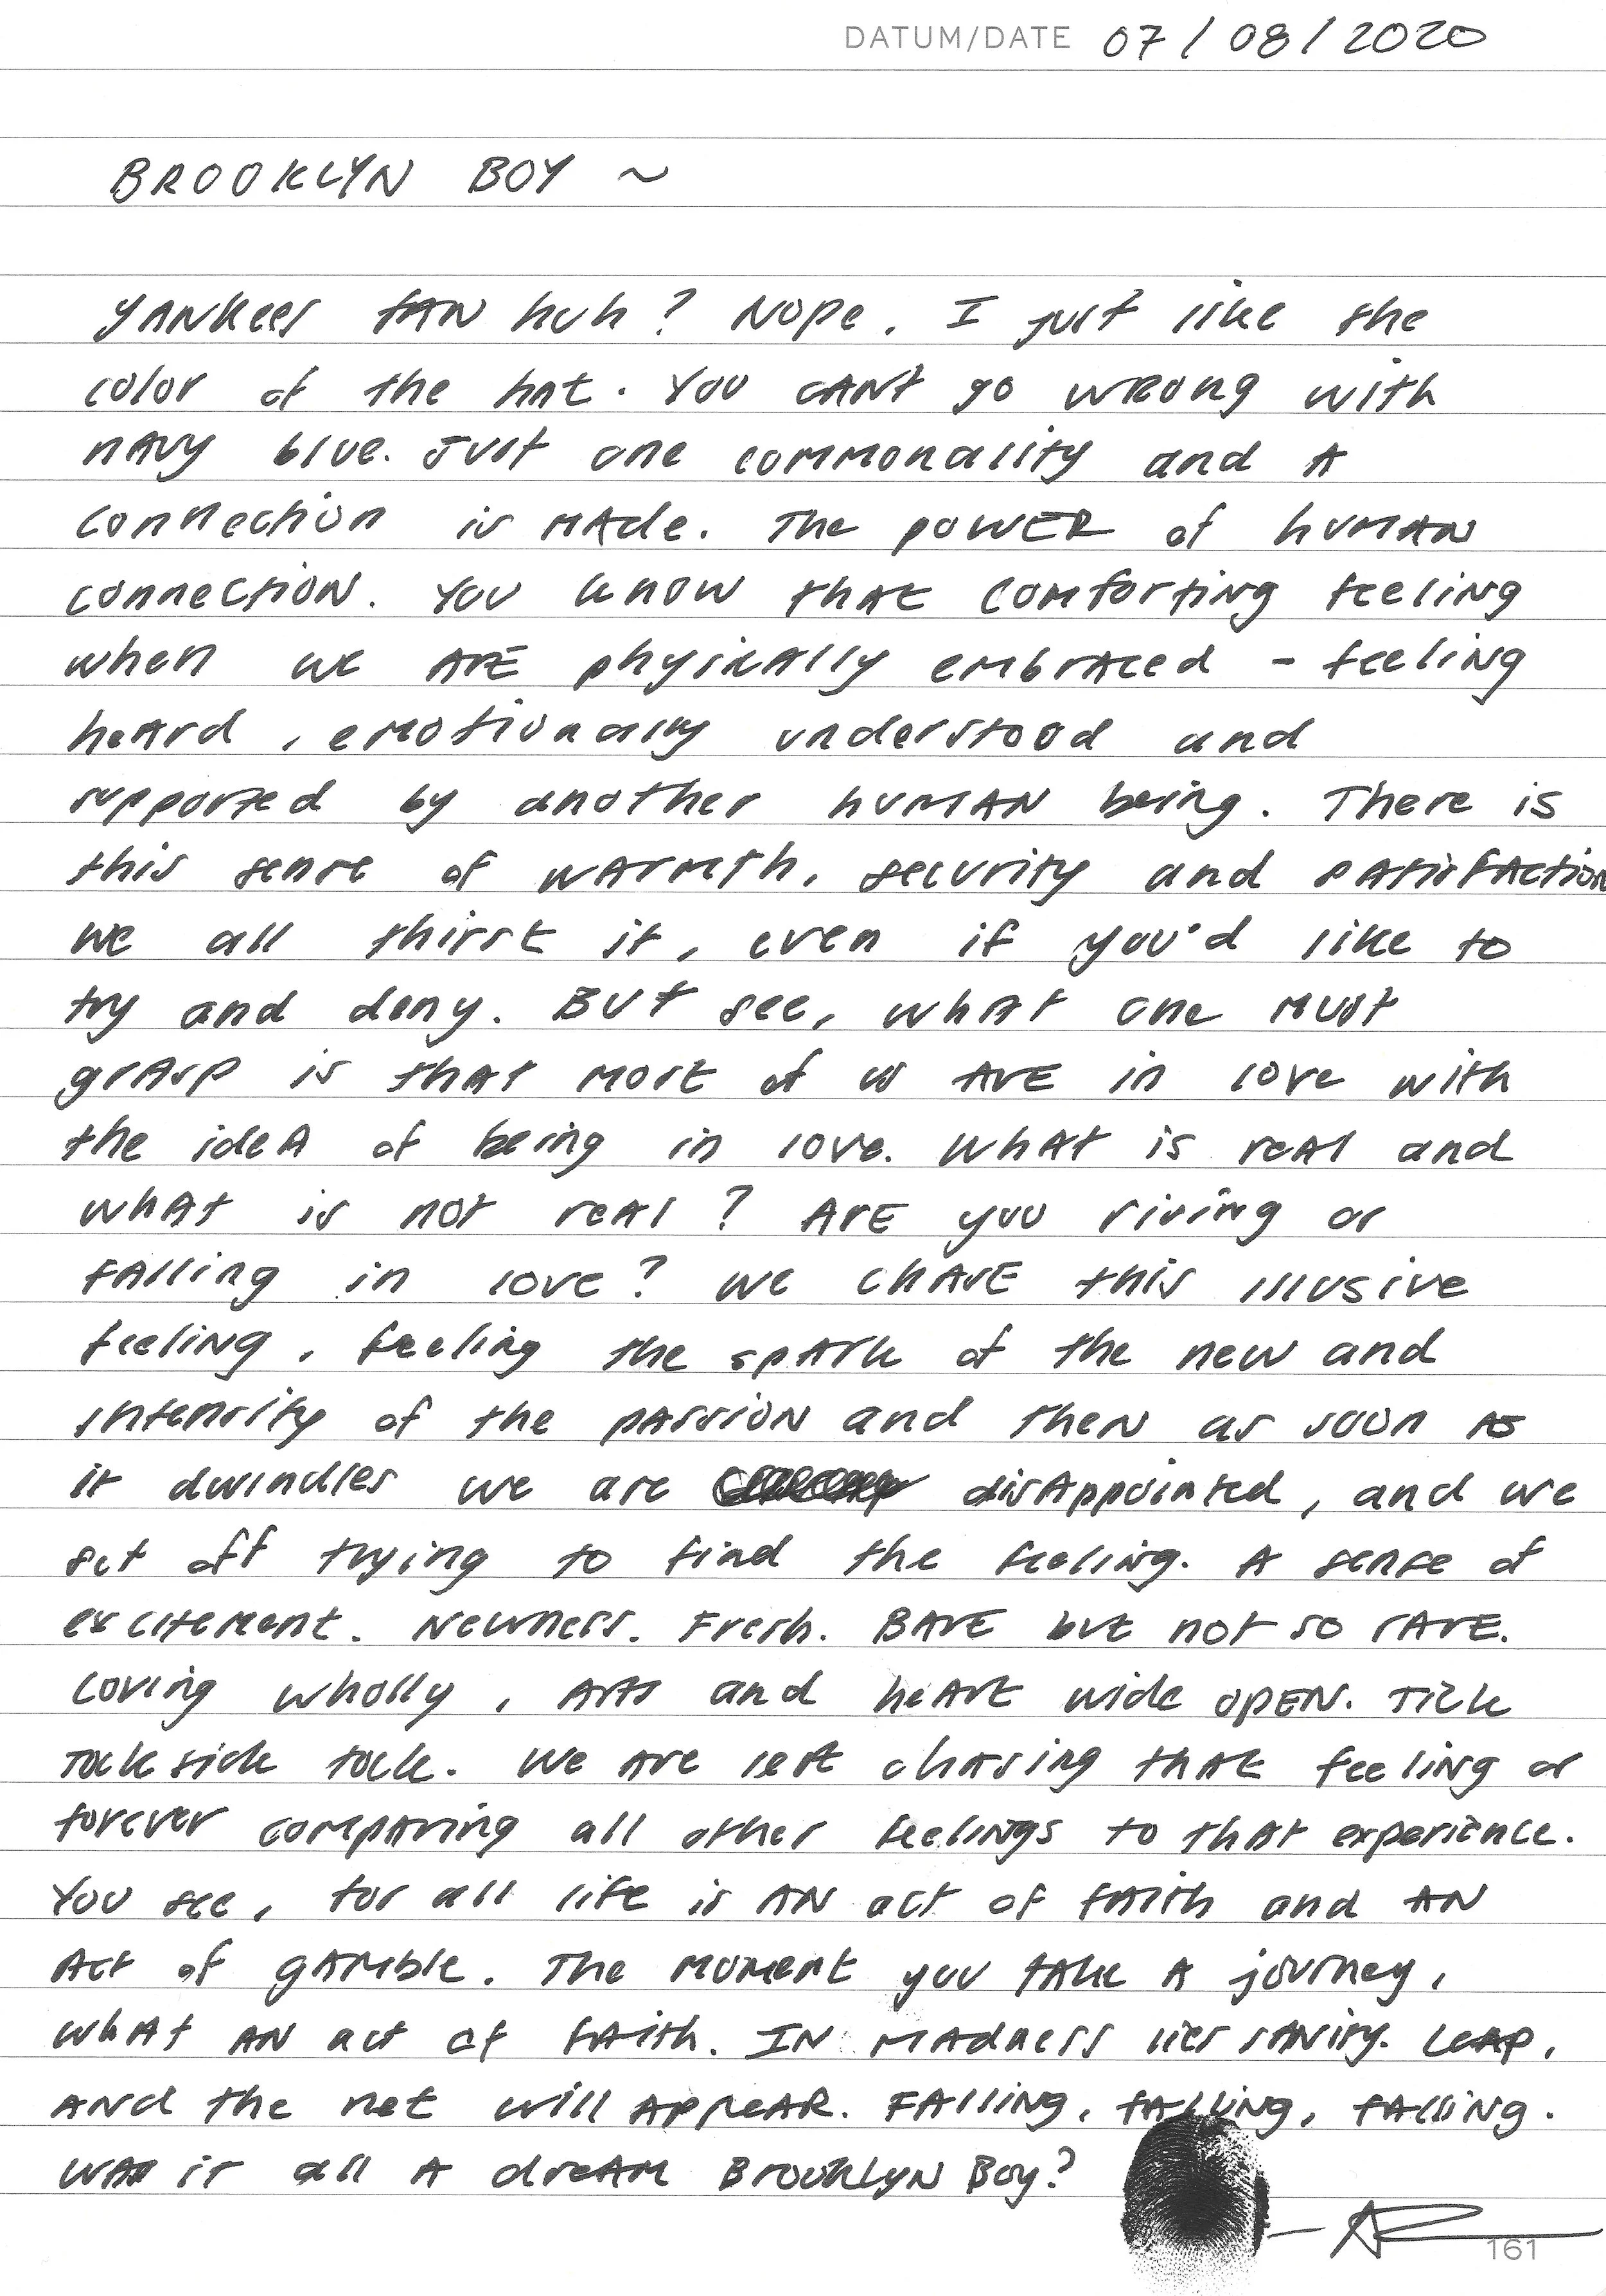 DATUM/DATE 07/08/2020
BROOKLYN BOY ~
YANKees fAN huh? Nope. I just like the
color of the hat. You CANt go wRong with
nAvy blue. Just one commonality and A
connection is MAde. The poWER of huMAN
connection. You know thAt comforting feeling
when we ARE physically embraced - feeling
heard, emotionally understood and
supported by another huMAN being. There is
this sense of wArmth, security and satisfaction
we all thirst it, even if you'd like to
try and deny. But see, whAt one must
grAsp is thAt most of us ArE in love with
the ideA of being in love. WhAt is reAl and
whAt is not reAl? ArE you rising or
fAlling in love? We chAsE this illusive
feeling, feeling the spArk of the new and
intensity of the pAssioN and theN as soon as
it dwindles we are disAppointed, and we
set off trying to find the feeling. A sense of
excitement. Newness. Fresh. BArE but not so rArE.
Loving wholly, and heArt wide opEN. Tick
tock tick tock. We Are left chAsing thAt feeling or
forever compAring all other feelings to thAt experience.
You see, for all life is AN act of fAith and AN
Act of gAMble. The moment you tAke A journey,
whAt AN act of fAith. IN MAdness lies sANity. LeAp,
ANd the net will AppeAR. FAlling, fAlling, fAlling.
WAs it all A dreAM BrooklyN Boy?
161